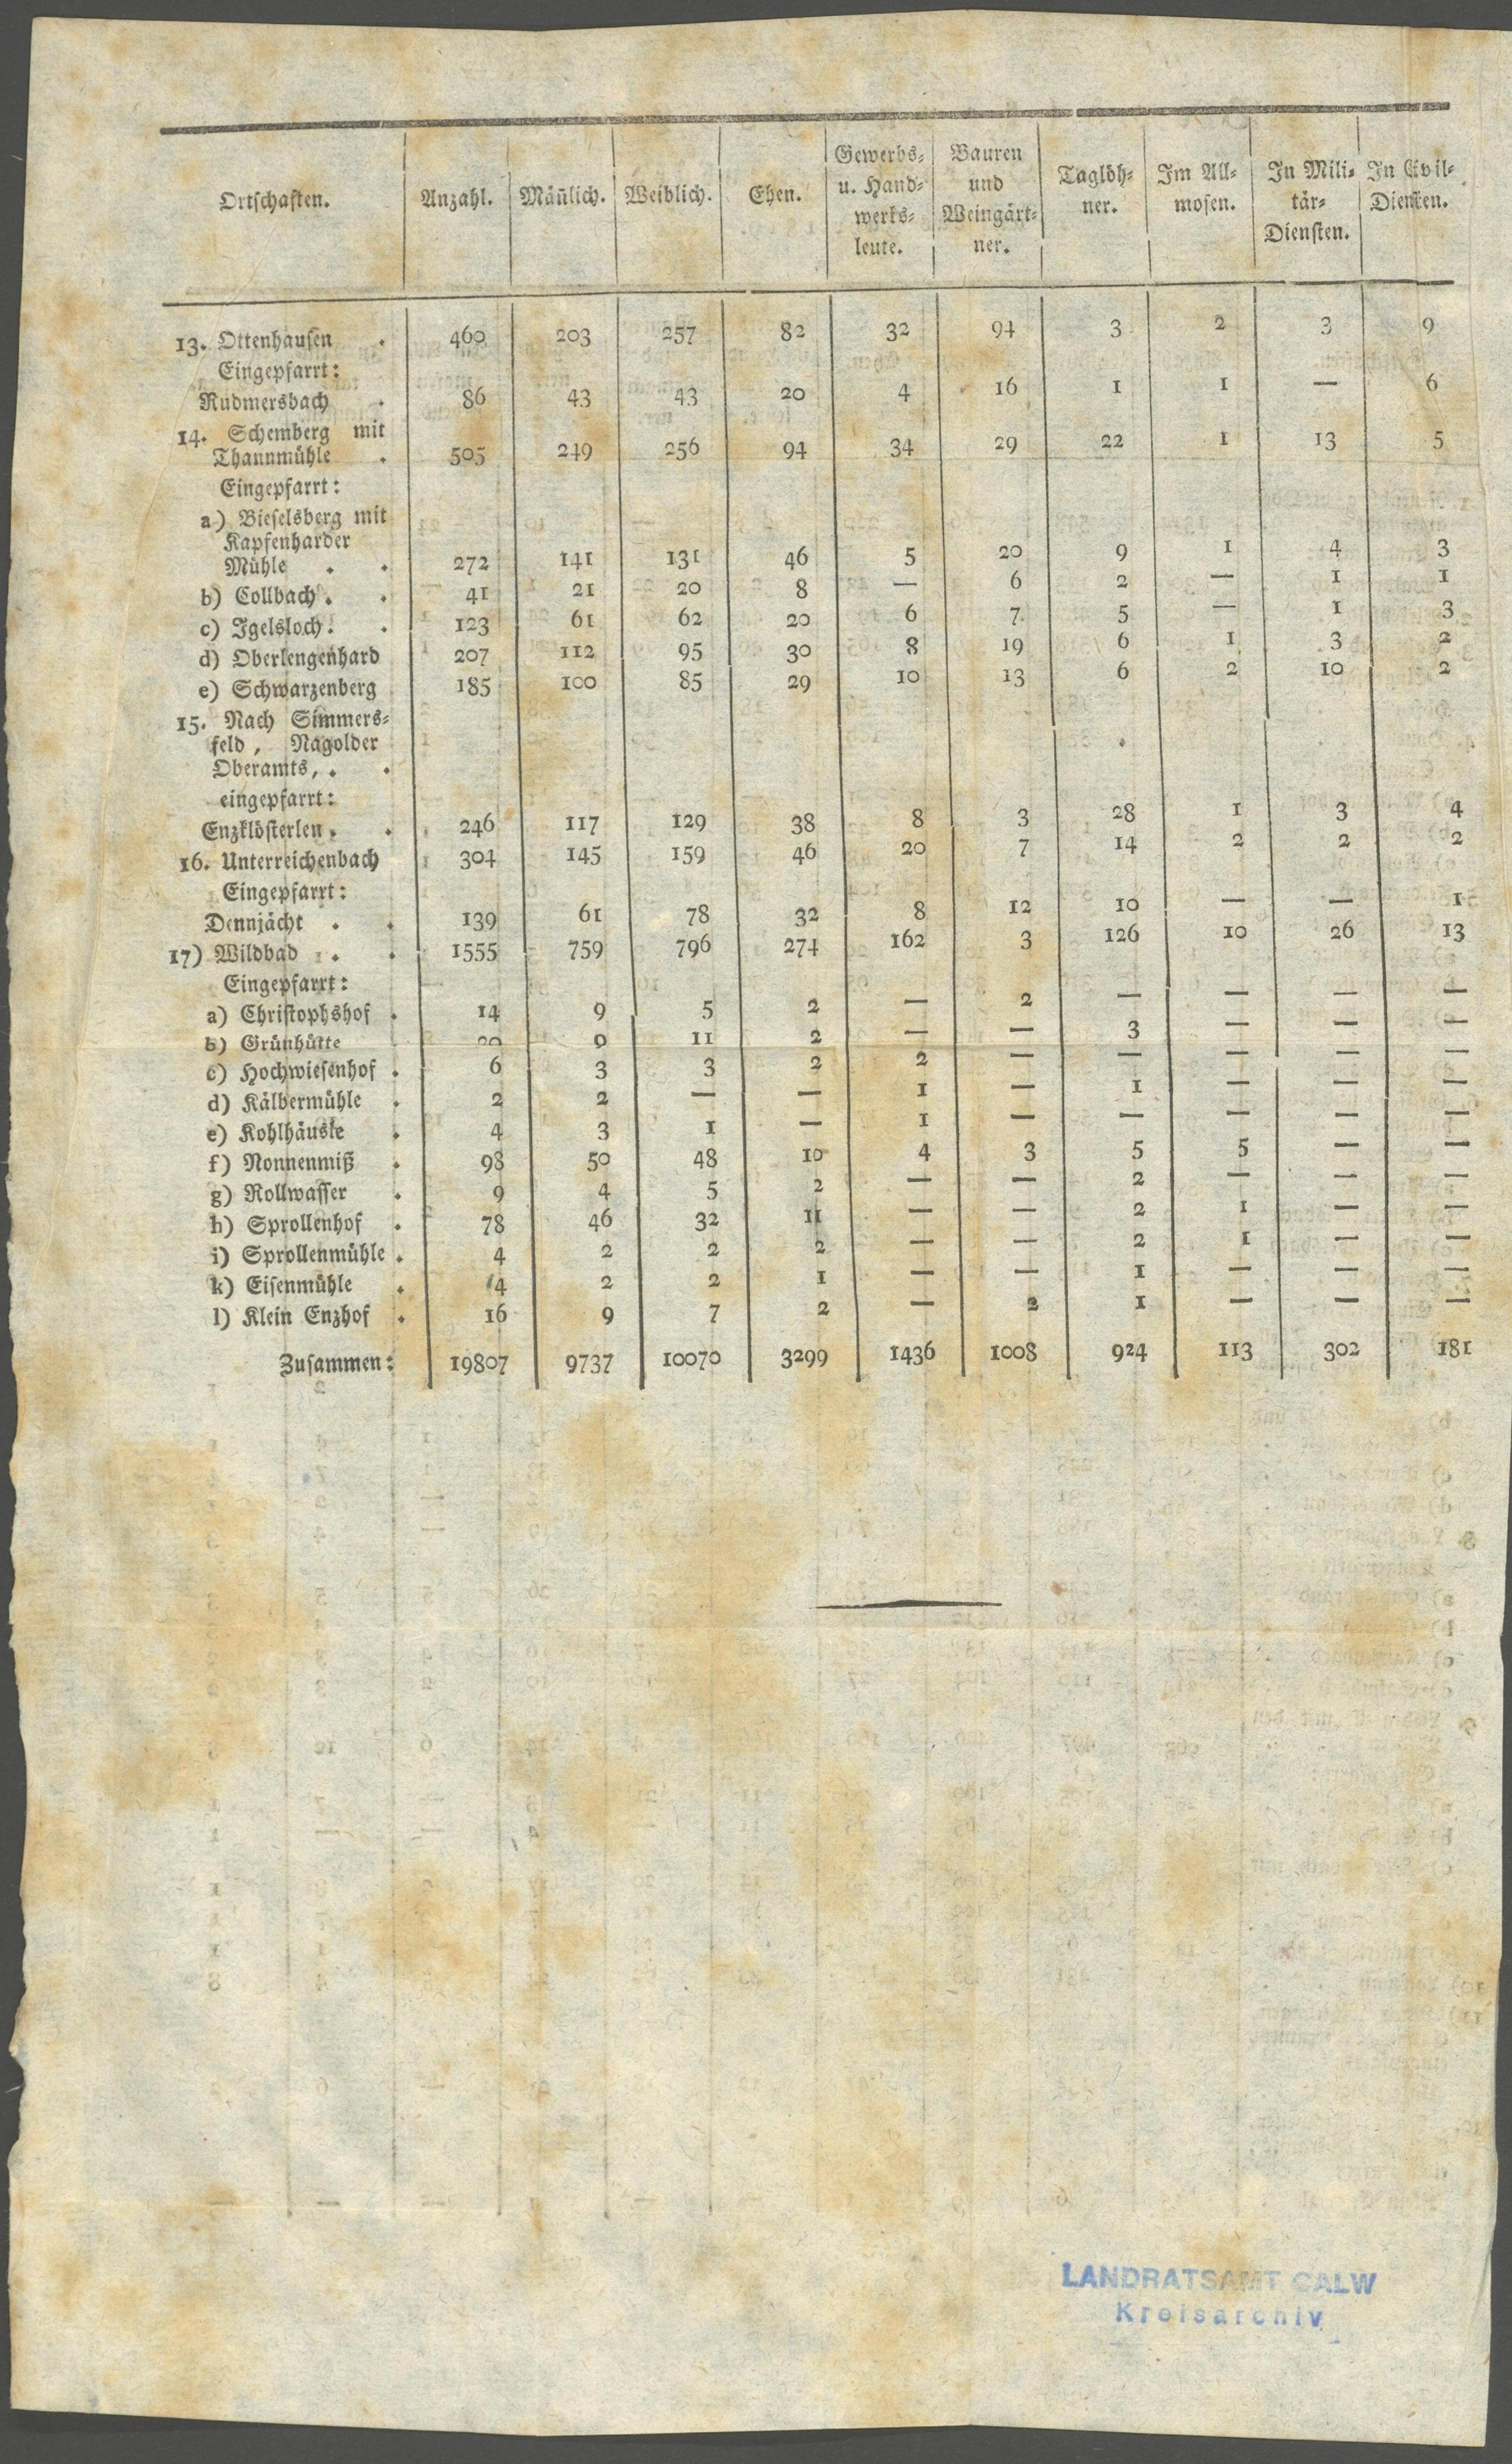 Ortschaften. Anzahl. Mäñlich. Weiblich. Ehen. Gewerbs- u. Hand-werks-leute. Bauren und Weingärt-ner. Taglöh-ner. Im All-mosen. In Mili-tär-Diensten. In Civil-Diensten.
13. Ottenhausen . 460 203 257 82 32 94 3 2 3 9
Eingepfarrt:
Rudmersbach . 86 43 43 20 4 16 1 1 — 6
14. Schemberg mit
Thannmühle . 505 249 256 94 34 29 22 1 13 5
Eingepfarrt:
a) Bieselsberg mit
Kapfenharder
Mühle . . 272 141 131 46 5 20 9 1 4 3
b) Collbach . . 41 21 20 8 — 6 2 — 1 1
c) Igelsloch . . 123 61 62 20 6 7 5 — 1 3
d) Oberlengenhard 207 112 95 30 8 19 6 1 3 2
e) Schwarzenberg 185 100 85 29 10 13 6 2 10 2
15. Nach Simmers-
feld, Nagolder
Oberamts, . .
eingepfarrt:
Enzklösterlen . . 246 117 129 38 8 3 28 1 3 4
16. Unterreichenbach 304 145 159 46 20 7 14 2 2 2
Eingepfarrt:
Dennjächt . . 139 61 78 32 8 12 10 — — 1
17) Wildbad . . 1555 759 796 274 162 3 126 10 26 13
Eingepfarrt:
a) Christophshof . 14 9 5 2 — 2 — — — —
b) Grünhütte 20 9 11 2 — — 3 — — —
c) Hochwiesenhof . 6 3 3 2 2 — — — — —
d) Kälbermühle . 2 2 — — 1 — 1 — — —
e) Kohlhäusle . 4 3 1 — 1 — — — — —
f) Nonnenmiß . 98 50 48 10 4 3 5 5 — —
g) Rollwasser . 9 4 5 2 — — 2 — — —
h) Sprollenhof . 78 46 32 11 — — 2 1 — —
i) Sprollenmühle . 4 2 2 2 — — 2 1 — —
k) Eisenmühle . 4 2 2 1 — — 1 — — —
l) Klein Enzhof . 16 9 7 2 — 2 1 — — —
Zusammen: 19807 9737 10070 3299 1436 1008 924 113 302 181
LANDRATSAMT CALW
Kreisarchiv